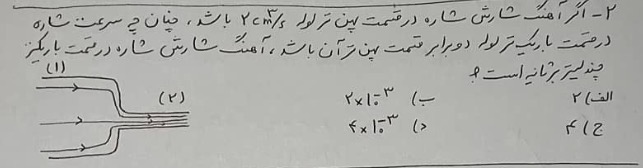 ۲- اگر آهنگ شارش شاره در قسمت پهن تر لوله ۲cm³/s باشد، چنان چه سرعت شاره
در قسمت باریک تر لوله دو برابر قسمت پهن تر آن باشد، آهنگ شارش شاره در قسمت باریکتر
چند لیتر بر ثانیه است؟
الف) ۲
ب) ۲×۱۰⁻³
ج) ۴
د) ۴×۱۰⁻³
(۱)
(۲)